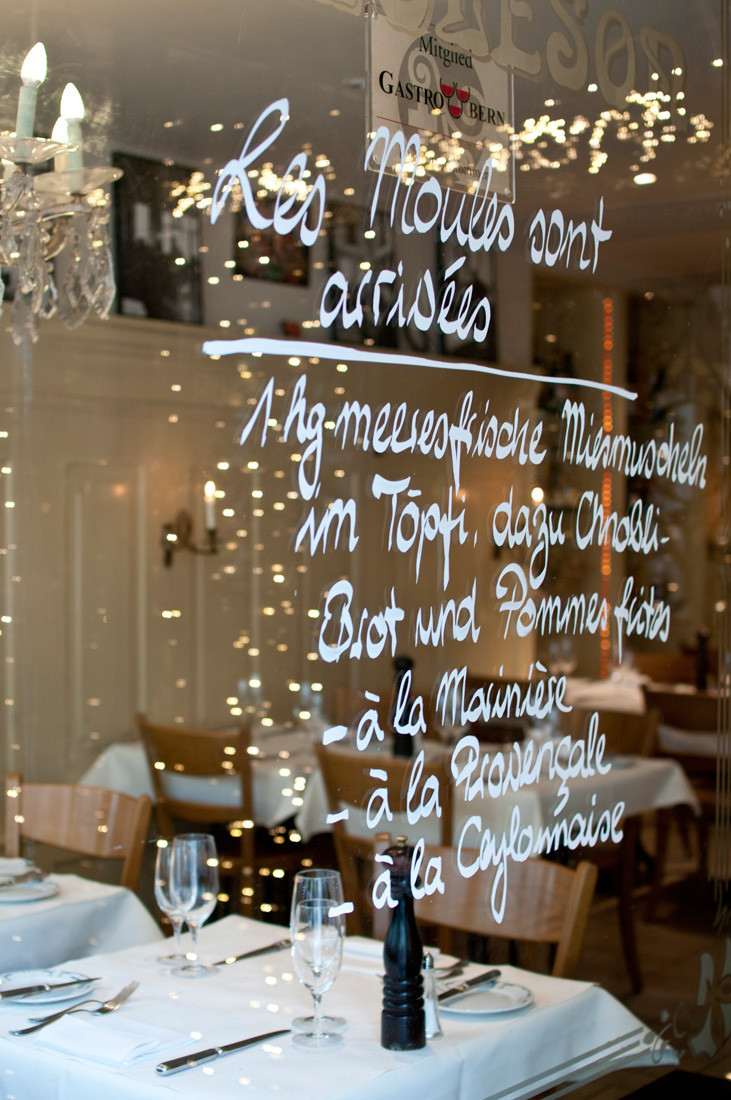 Mitglied
GASTRO BERN
Les Moules sont
arrivées
1 kg meeresfrische Miesmuscheln
im Töpfi, dazu Chnobli-
Brot und Pommes frites
- à la Marinière
- à la Provençale
- à la Ceylonnaise